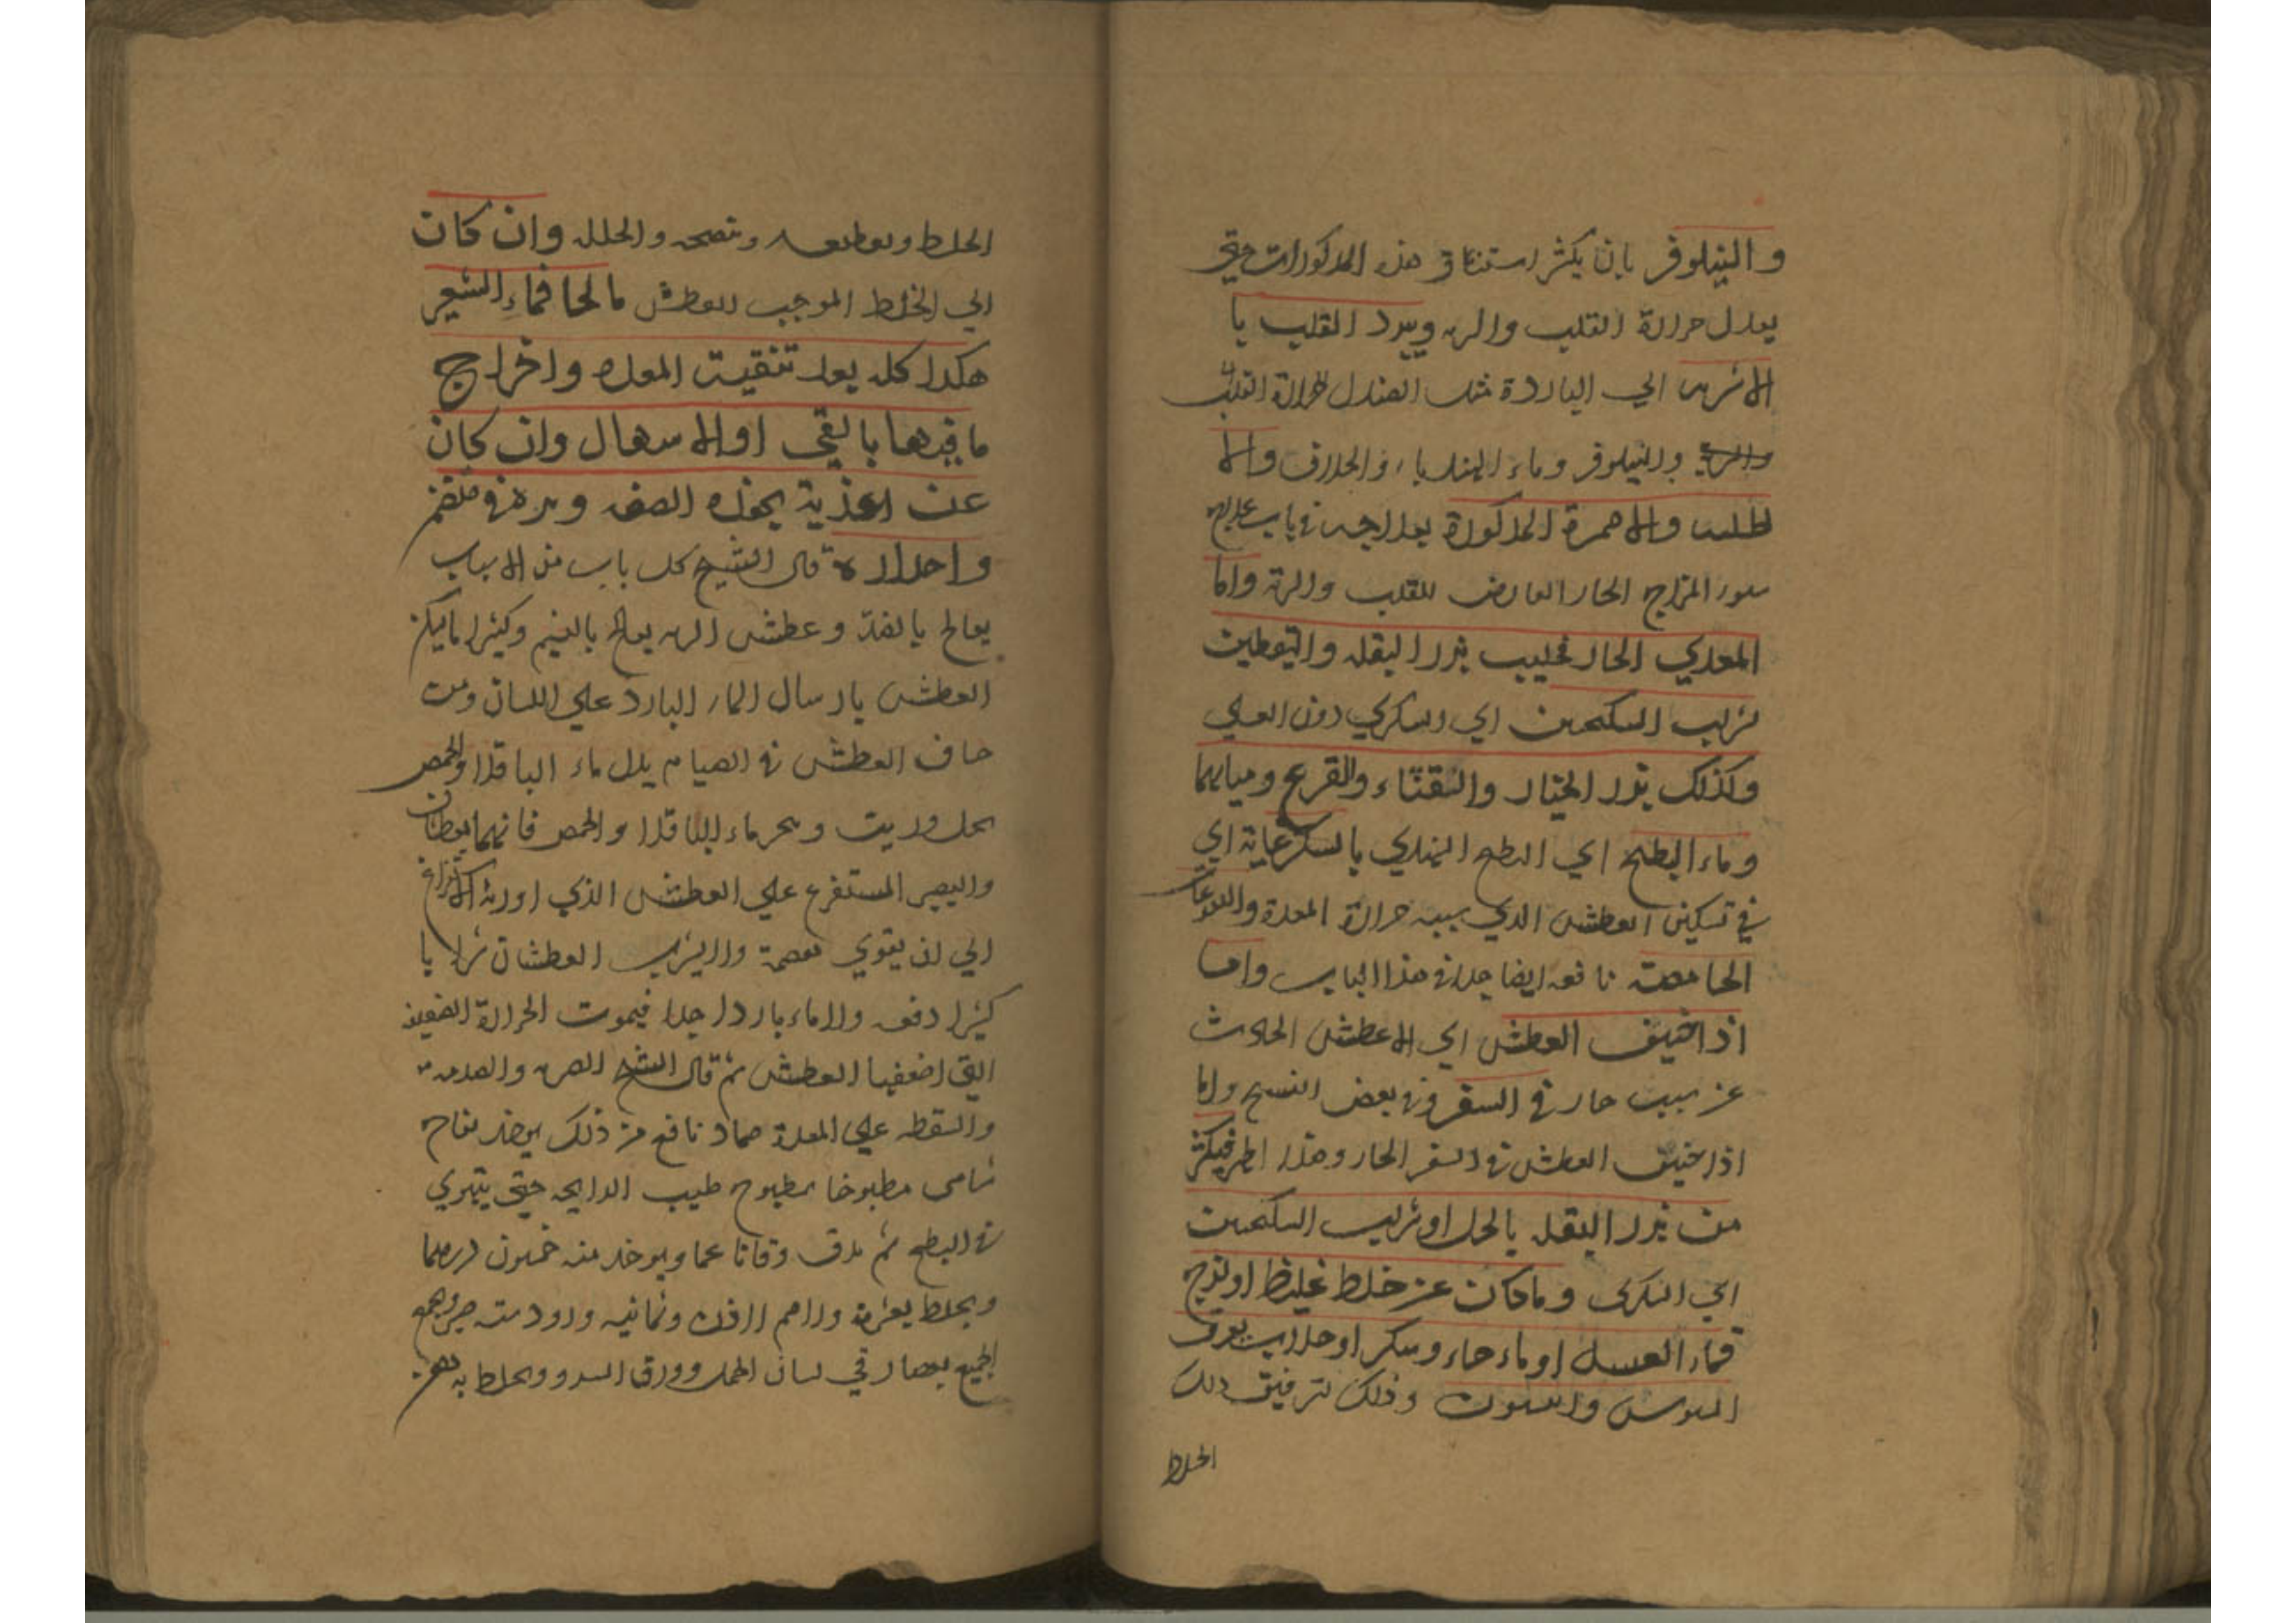 والنيلوفر بان يكثر استنشاق هذه المذكورات حتى
يعدل حرارة القلب والريه ويبرد القلب با
الاشربه اي الباردة مثل الصندل لحرارة القلب
والنيلوفر وماء الهندبا والخلاف والا
طليه والاضمدة المذكورة بعد اجه في باب علاج
سوء المزاج الحار العارض للقلب والرية واما
المعدي الحار فحليب بزر البقله واليقطين
بشراب السكنجبين اي السكري دون العسلي
وكذلك بزر الخيار والقثاء والقرع ومياهها
وماء البطيخ اي البطيخ الهندي بالسكر غاية اي
في تسكين العطش الذي سببه حرارة المعدة واللعوقات
الحامضة نافعه ايضا جدا في هذا الباب واما
اذا خيف العطش اي العطش الحادث
عن سبب حار في السفر وفي بعض النسخ واما
اذا خيف العطش في السفر الحار وهذا اظهر فيكثر
من بزر البقله بالخل او شراب السكنجبين
اي السكري وما كان عن خلط غليظ او لزج
فماء العسل او ماء حار وسكر او جلاب بعرق
السوس وذلك لترقيق ذلك
الخلط
الخلط وتقطيعه وتنضجه والحلله وان كان
اي الخلط الموجب للعطش مالحا فماء الشعير
هكذا كله بعد تنقيت المعده واخراج
ما فيها بالقي او الاسهال وان كان
عن اغذية بحفه الصفه
قال الشيخ كل باب من الاسباب
يعالج بالضد وعطش الريه يعالج بالنسيم وكثيرا ما يسكن
العطش بارسال الماء البارد على اللسان ومن
خاف العطش في الصيام بدل ماء الباقلا والحمص
بخل وزيت ويحر ماء الباقلا والحمص فانهما يعطشان
وليصبر المستفرغ علي العطش الذي اورثه الاستفراغ
الي ان يقوي هضمه ولا يشرب العطشان شرابا
كثيرا دفعه ولا ماء باردا جدا فيموت الحرارة الضعيفه
التي اضعفها العطش ثم قال الشيخ الضربه والصدمه
والسقطه علي المعدة ضماد نافع من ذلك يوخذ تفاح
شامى مطبوخا بمطبوح طيب الرايحه حتى يتهري
في الطبخ ثم يدق دقا ناعما ويوخذ منه خمسون درهما
ويخلط بعشرة ثمانيه صبر ويجمع
الجميع بعصارتي لسان الحمل وورق السرو ويخلط به دهن